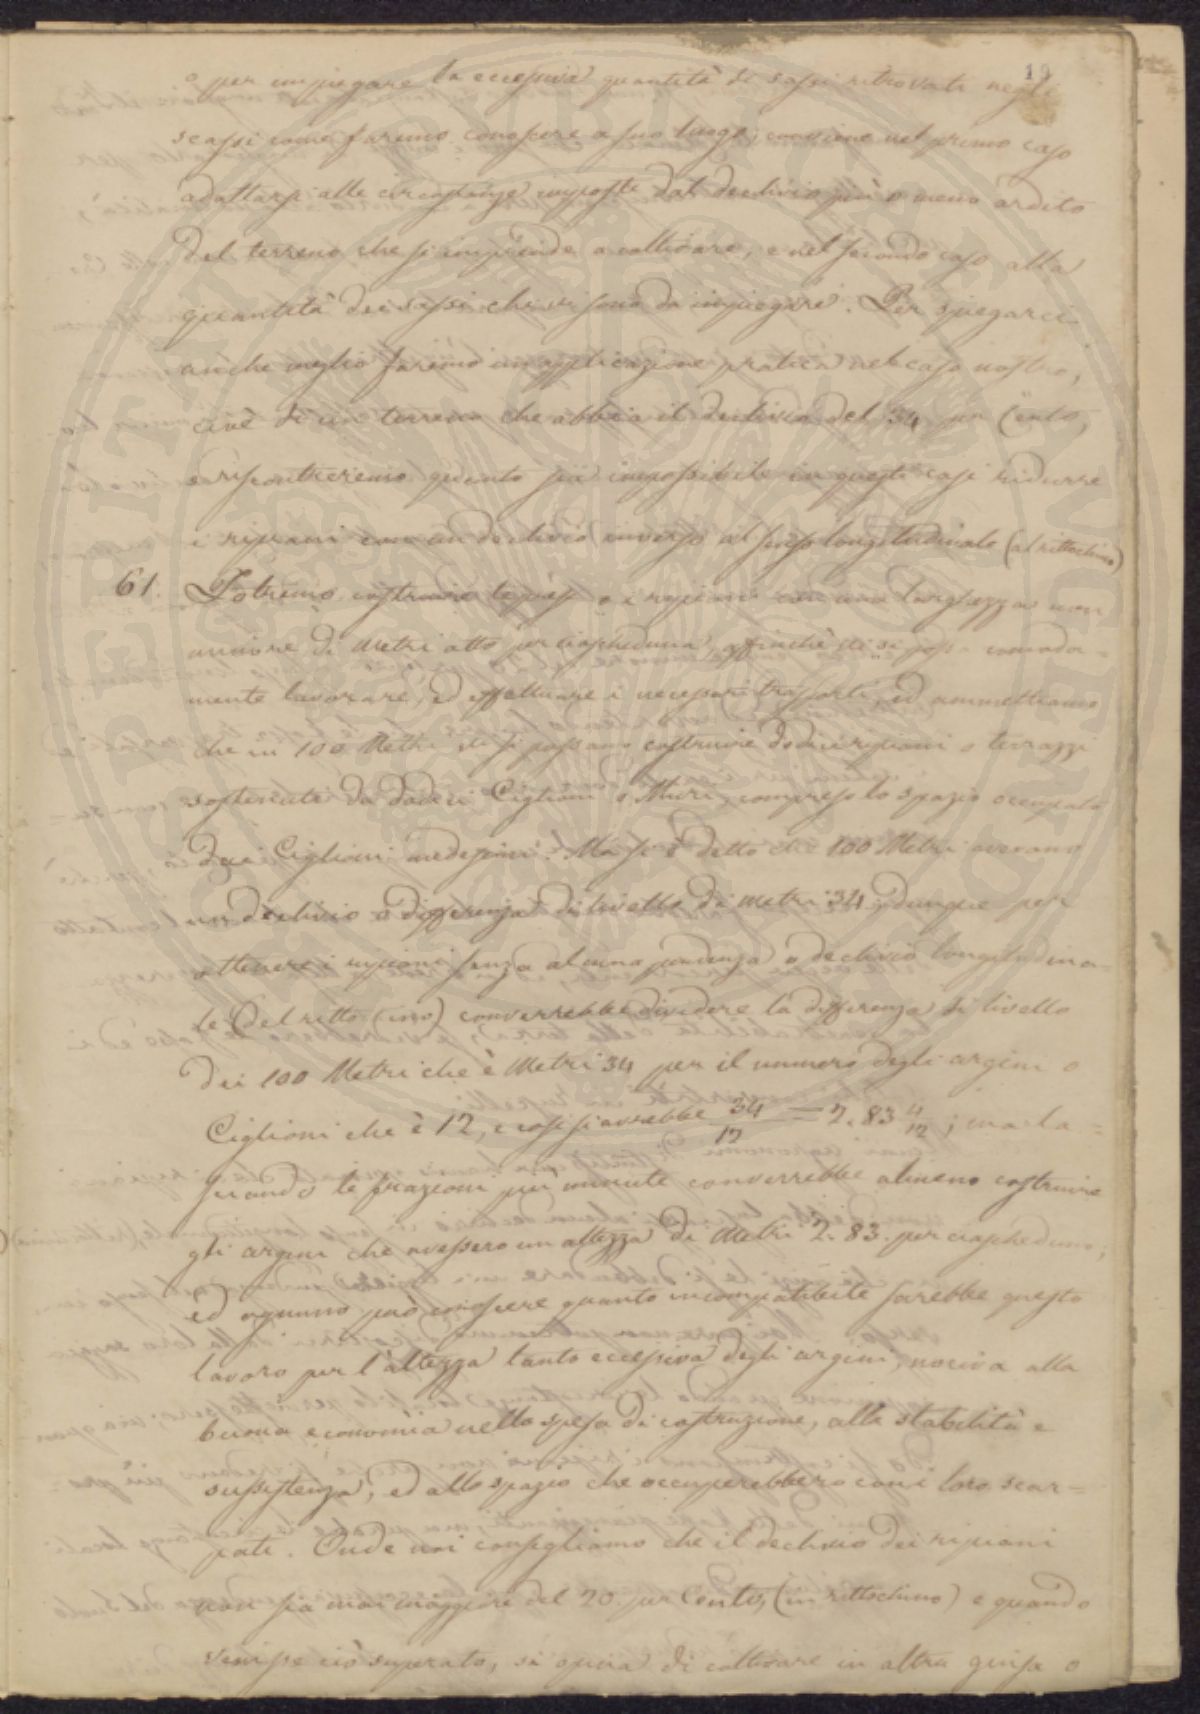 19
o per impiegare la eccessiva quantità di sassi ritrovati negli
scassi come faremo conoscere a suo luogo; conviene nel primo caso
adattarsi alle circostanze imposte dal declivio più o meno ardito
del terreno che si imprende a coltivare, e nel secondo caso alla
quantità dei sassi che vi sono da impiegare. Per spiegarci
anche meglio faremo un'applicazione pratica nel caso nostro,
cioè di un terreno che abbia il declivio del 34 per Cento,
e riscontreremo quanto sia impossibile in questi casi ridurre
i ripiani con un declivio inverso al senso longitudinale (al rittochino)
61. Potremo costruire le o i ripiani con una larghezza non
minore di Metri otto per ciascheduna, affinchè vi si possa comoda=
mente lavorare, ed effettuare i necessari trasporti, ed ammettiamo
che in 100 Metri vi si possano costruire dodici ripiani o terrazzi
sostenuti da dodici Ciglioni o Muri, compreso lo spazio occupato
dai Ciglioni medesimi. Ma si è detto che 100 Metri avevano
un declivio o differenza di livello di Metri 34, dunque per
ottenere i ripiani senza alcuna pendenza o declivio longitudina=
le (del rittochino) converrebbe dividere la differenza di livello
dei 100 Metri che è Metri 34 per il numero degli argini o
Ciglioni che è 12, e così si avrebbe 34/12 = 2.83 4/12; ma la=
sciando le frazioni più minute converrebbe almeno costruire
gli argini che avessero un altezza di Metri 2.83. per ciascheduno,
ed ognuno può conoscere quanto incompatibile sarebbe questo
lavoro per l'altezza tanto eccessiva degli argini, nociva alla
buona economia nella spesa di costruzione, alla stabilità e
sussistenza, ed allo spazio che occuperebbero con i loro scar=
pate. Onde noi consigliamo che il declivio dei ripiani
non sia mai maggiore del 20. per Cento, (in rittochino) e quando
venisse ciò superato, si di coltivare in altra guisa o